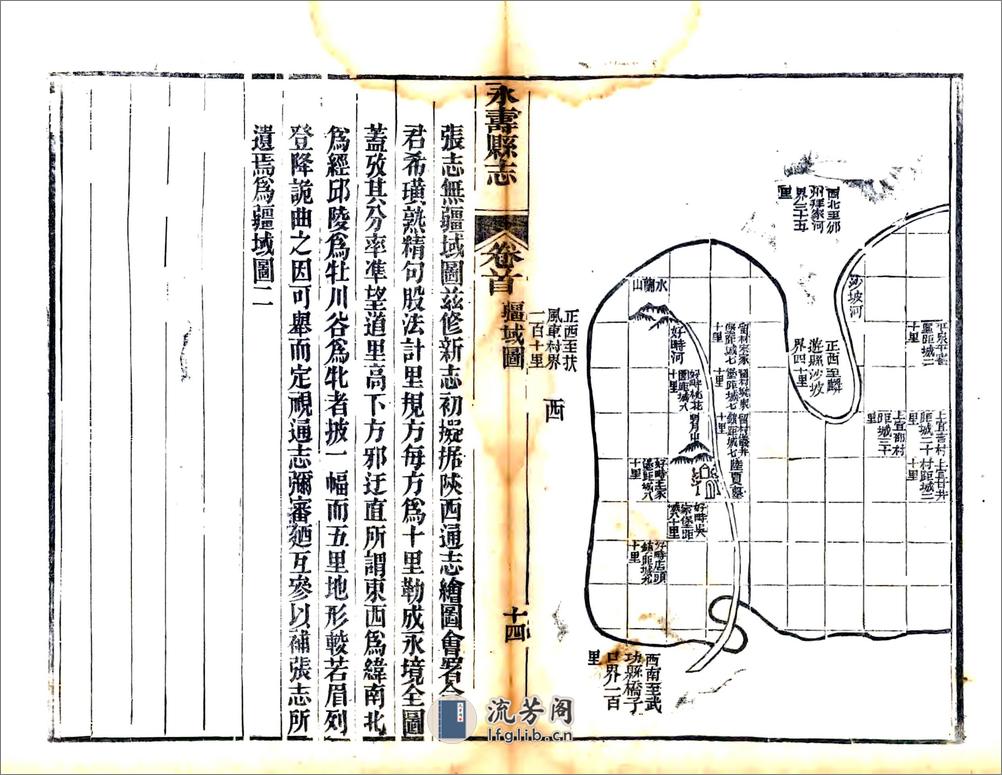 西北至邠
州拜家河
界三十五
里
沙坡河
正西至麟
遊縣沙坡
界四十里
上宜甘井
村距城二
十里
距城二十
距城三十
里
好畤河
明月山
陸賈墓
好畤店頭
鎮距城九
十里
西南至武
功縣橋子
口界一百
里
正西至扶
風東村界
一百十里
西
永壽縣志
卷首
疆域圖
十四
張志無疆域圖茲修新志初擬据陝西通志繪圖會署令
君希璜熟精句股法計里規方每方為十里勒成永境全圖
蓋攷其分率準望道里高下方邪迂直所謂東西為緯南北
為經邱陵為牡川谷為牝者披一幅而五里地形較若眉列
登降詭曲之因可舉而定視通志彌審廼互參以補張志所
遺焉為疆域圖二
流芳阁
lfglib.cn